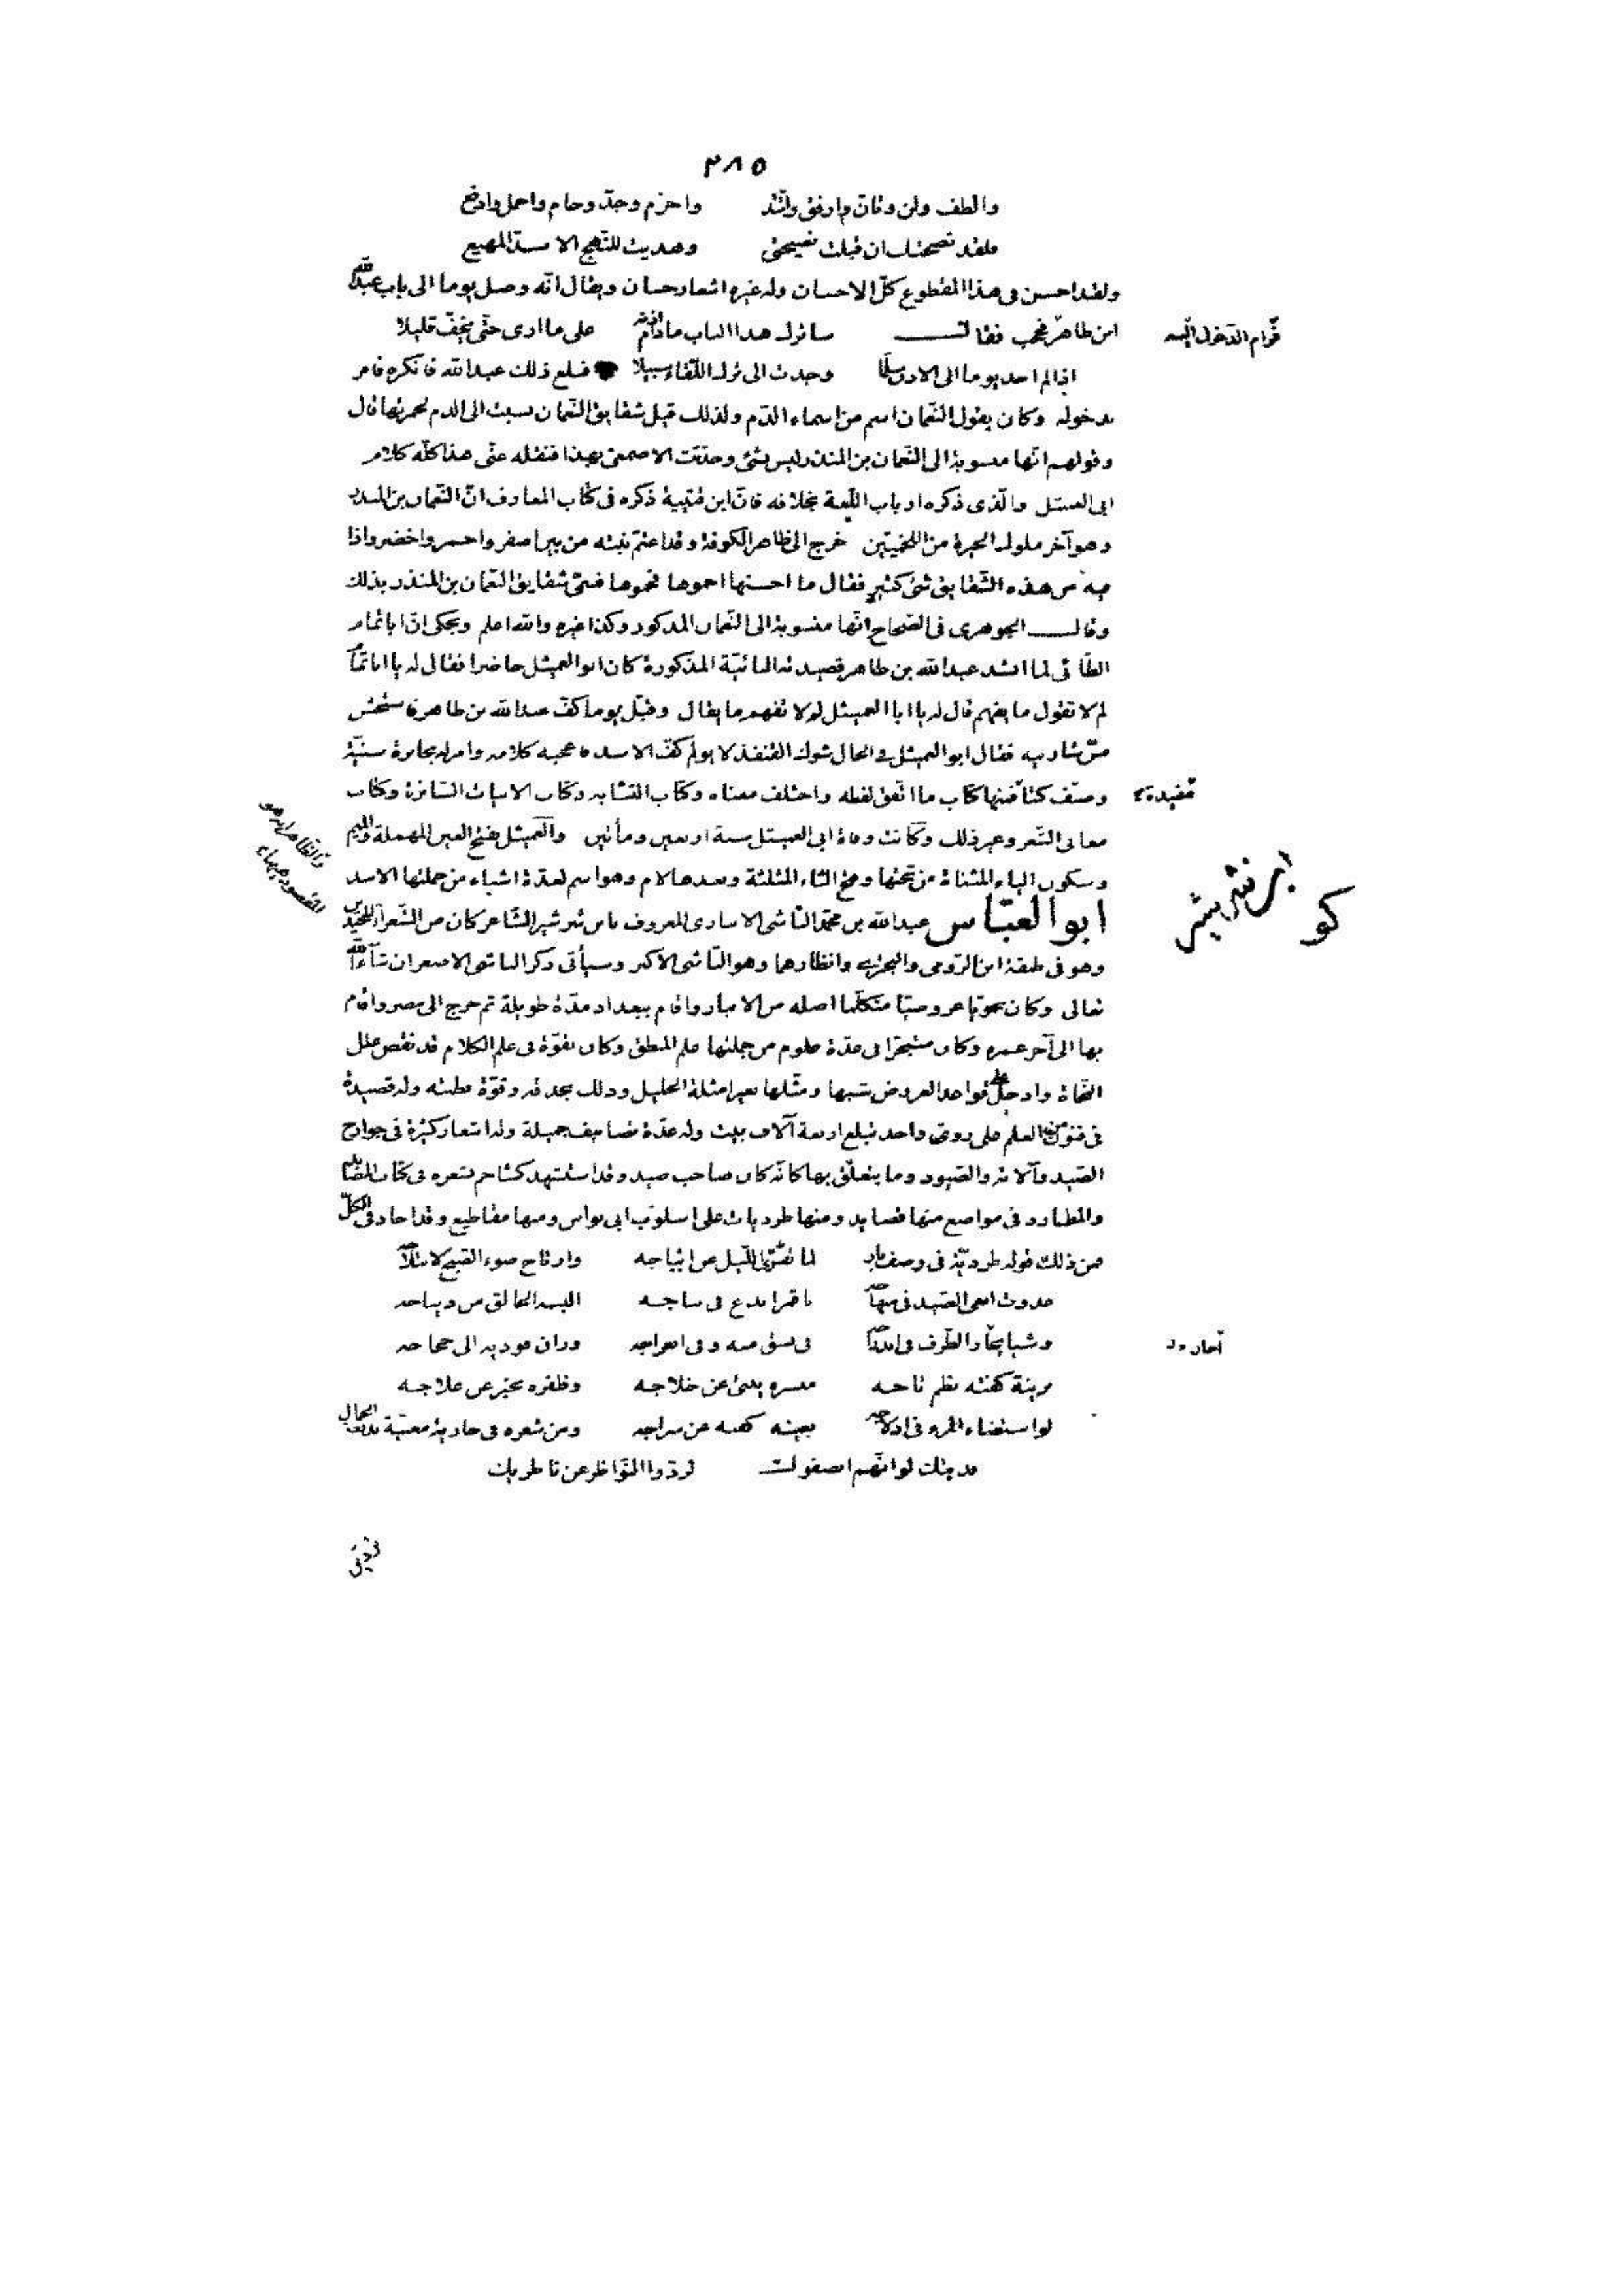 ٢٨٥
والطف ولن وتأن وارفق واتئد واحزم وجد وحام واحمل وادفع
فلقد نصحتك ان قبلت نصيحتى وهديت للنهج الاسد المهيع
ولقد احسن فى هذا المقطوع كل الاحسان وله غيره اشعار حسان ويقال انه وصل يوما الى باب عبدالله
ابن طاهر فحجب فقال ساترك هذا الباب مادام اذنه على ما ارى حتى يخف قليلا
فرام الدخول اليه
اذا لم اجد يوما الى الاذن سلما وجدت الى ترك اللقاء سبيلا فبلغ ذلك عبدالله فانكره فامر
بدخوله وكان يقول النعمان اسم من اسماء الدم ولذلك قيل شقايق النعمان نسبت الى الدم لحمرتها قال
وقولهم انها منسوبة الى النعمان بن المنذر ليس بشئ وحدثت الاصمعى بهذا فنقله عنى هذا كله كلام
ابى العميثل والذى ذكره ارباب اللغة بخلافه فان ابن قتيبة ذكره فى كتاب المعارف ان النعمان بن المنذر
وهو آخر ملوك الحيرة من اللخميين خرج الى ظاهر الكوفة وقد اعتم نبته من بين اصفر واحمر واخضر واذا
فيه من هذه الشقايق شئ كثير فقال ما احسنها احموها فحموها فسمى شقايق النعمان بن المنذر بذلك
وقال الجوهرى فى الصحاح انها منسوبة الى النعمان المذكور وكذا غيره والله اعلم ويحكى ان ابا تمام
الطائى لما انشد عبدالله بن طاهر قصيدته البائية المذكورة كان ابو العميثل حاضرا فقال له يا ابا تمام
لم لا تقول ما يفهم قال له يا ابا العميثل لم لا تفهم ما يقال وقبل يوما كف عبدالله بن طاهر فاستخشن
مس شاربيه فقال ابو العميثل فى الحال شوك القنفذ لا يولم كف الاسد فاعجبه كلامه وامر له بجائزة سنية
وصنف كتبا منها كتاب ما اتفق لفظه واختلف معناه وكتاب التشابه وكتاب الابيات السائرة وكتاب
مفيدة
معانى الشعر وغير ذلك وكانت وفاة ابى العميثل سنة اربعين ومأتين والعميثل بفتح العين المهملة والميم
وسكون الياء المثناة من تحتها وفتح الثاء المثلثة وبعدها لام وهو اسم لعدة اشياء من جملتها الاسد
والظاهر انه هو
المقصود هيهنا
ابو العباس عبدالله بن محمد الناشى الانبارى المعروف بابن شرشير الشاعر كان من الشعراء المجيدين
ابن شرشير
كو
وهو فى طبقة ابن الرومى والبحترى وانظارهما وهو الناشى الاكبر وسيأتى ذكر الناشى الاصغر ان شاء الله
تعالى وكان نحويا عروضيا متكلما اصله من الانبار واقام ببغداد مدة طويلة ثم خرج الى مصر واقام
بها الى آخر عمره وكان متبحرا فى عدة علوم من جملتها علم المنطق وكان بقوة فى علم الكلام قد نقض علل
النحاة وادخل على قواعد العروض شبها ومثلها بغير امثلة الخليل وذلك بحذقه وقوة فطنته وله قصيدة
فى فنون من العلم على روى واحد تبلغ اربعة آلاف بيت وله عدة تصانيف جميلة وله اشعار كثيرة فى جوارح
الصيد وآلاته والصيود وما يتعلق بها كانه كان صاحب صيد وقد استشهد كشاجم بشعره فى كتاب المصايد
والمطارد فى مواضع منها قصايد ومنها طرديات على اسلوب ابى نواس ومنها مقاطيع وقد اجاد فى الكل
فمن ذلك قوله طردية فى وصف باز لما تفرى الليل عن اثباجه وارتاح ضوء الصبح لانبلاجه
غدوت ابغى الصيد فى منهاجه باقمر ابدع فى نتاجه البسه الخالق من ديباجه
وشيا يحار الطرف فى اندراجه فى نسق منه وفى انعراجه وزان فوديه الى حجاجه
بزينة كفته نظم تاجه منسره ينبى عن خلاجه وظفره يخبر عن علاجه
لو استضاء المرء فى ادلاجه بعينه كفته عن سراجه ومن شعره فى جارية مغنية بديعة الجمال
فديتك لو انهم انصفوك لردوا النواظر عن ناظريك
تردين